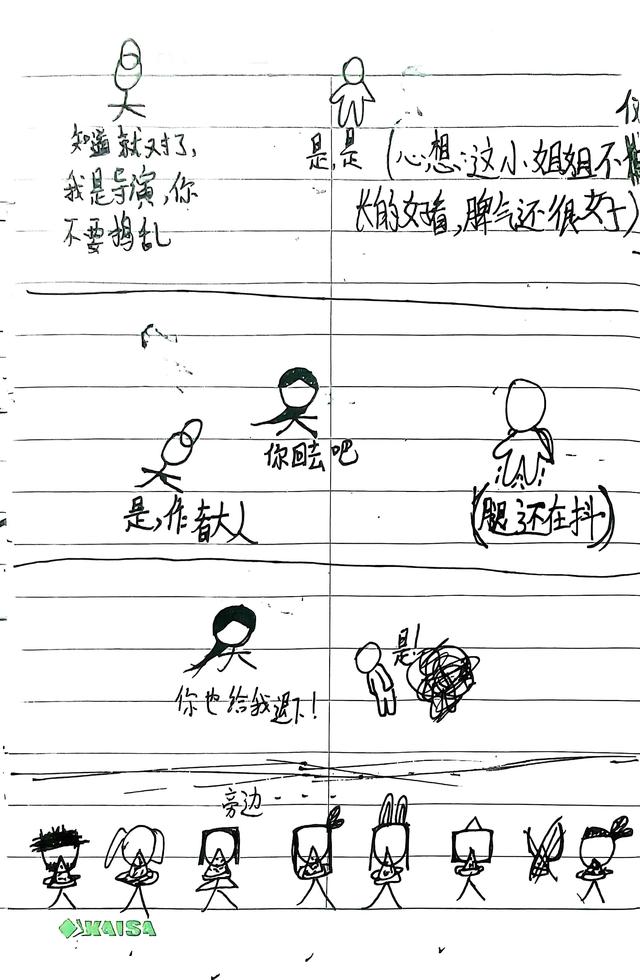 知道就对了,
我是导演,你
不要捣乱
是,是
(心想:这小姐姐不
长的好看,脾气还很好)
你回去吧
是,作者大人
(腿还在抖)
你也给我退下!
是!
旁边- - -
KAISA